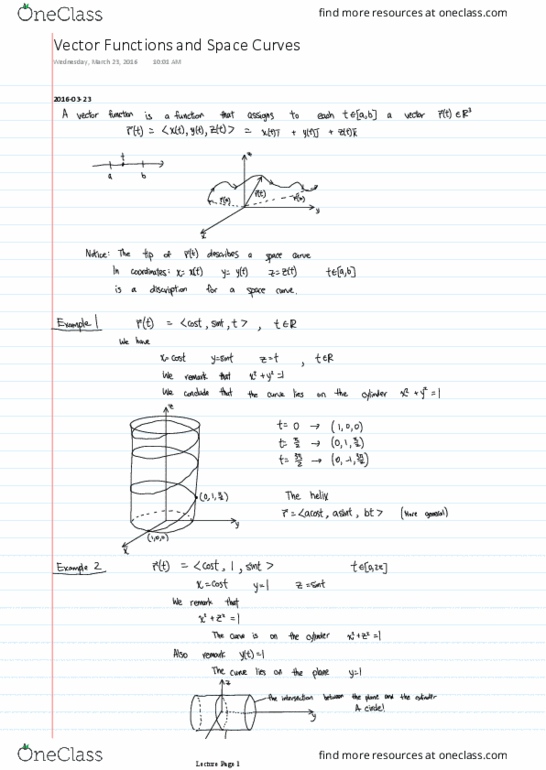 OneClass find more resources at oneclass.com
Vector Functions and Space Curves
Wednesday, March 23, 2016 10:01 AM
2016-03-23
A vector function is a function that assigns to each t∈[a,b] a vector r⃗(t) ∈ℝ³
r⃗(t) = <x(t), y(t), z(t)> = x(t)i⃗ + y(t)j⃗ + z(t)k⃗
t
a b
z
r⃗(a) r⃗(t) r⃗(b)
y
x
Notice: The tip of r⃗(t) describes a space curve
In coordinates: x= x(t) y= y(t) z= z(t) t∈[a,b]
is a discription for a space curve.
Example 1 r⃗(t) = <cost, sint, t> , t∈ℝ
We have
x=cost y=sint z=t , t∈ℝ
We remark that x²+y²=1
We conclude that the curve lies on the cylinder x²+y²=1
z
t= 0 → (1,0,0)
t= π/2 → (0,1,π/2)
t= 3π/2 → (0,-1,3π/2)
(0,1,π/2)
The helix
r⃗ = <acost, asint, bt> (More general)
y
(1,0,0)
x
Example 2 r⃗(t) = <cost, 1, sint> t∈[0,2π]
x=cost y=1 z=sint
We remark that
x²+z²=1
The curve is on the cylinder x²+z²=1
Also remark y(t)=1
The curve lies on the plane y=1
z
the intersection between the plane and the cylinder
A circle!
y
OneClass find more resources at oneclass.com
Lecture Page 1